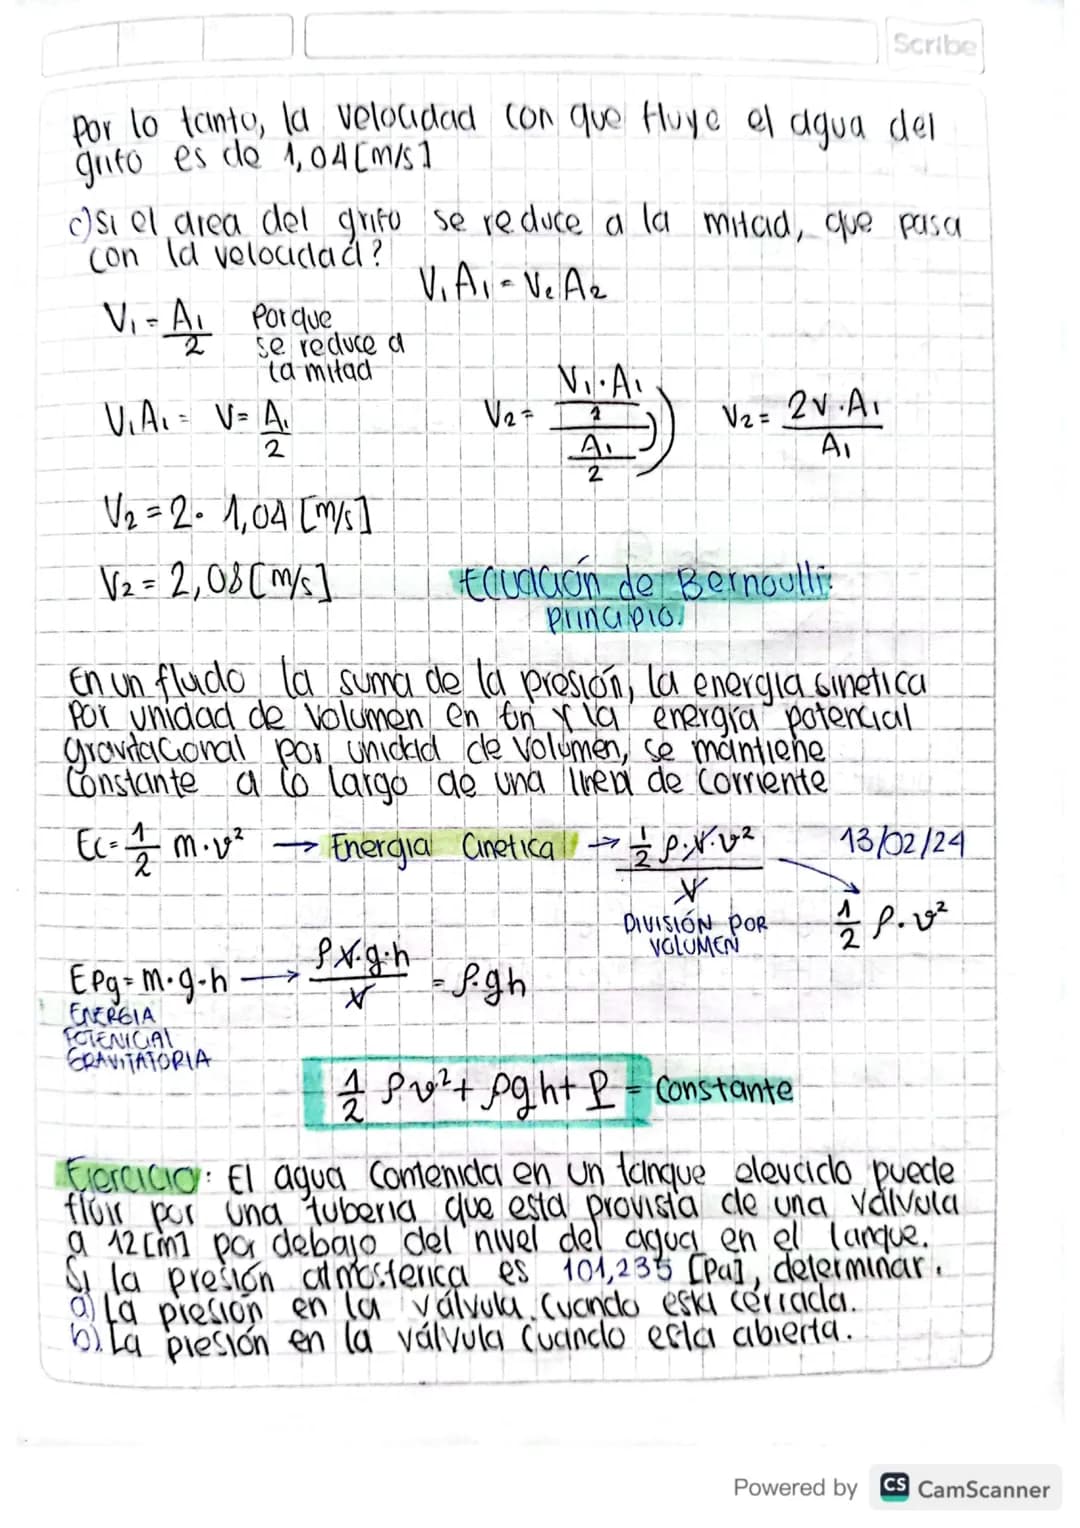 Scribe
Por lo tanto, la velocidad con que fluye el agua del
grifo es de 1,04 [m/s]
c) Si el area del grifo se reduce a la mitad, que pasa
con la velocidad?
V₁A₁ = V₂A₂
V₁ = A₁/2 Porque
se reduce a
la mitad
V₁A₁ = V = A₁/2 V₂ = (V₁·A₁/1)/(A₁/2) V₂ = 2V·A₁/A₁
V₂ = 2· 1,04 [m/s]
V₂ = 2,08 [m/s]
Ecuación de Bernoulli:
principio.
En un fluido la suma de la presión, la energia sinetica
por unidad de volumen en un y la energía potencial
gravitacional por unidad de volumen, se mantiene
constante a lo largo de una linea de corriente
Ec = 1/2 m·v² → Energia Cinetica → 1/2 ρ·V·v²/V 13/02/24
DIVISIÓN POR
VOLUMEN
1/2 ρ·v²
EPg = m·g·h → ρV·g·h/V = ρ·gh
ENERGIA
POTENICIAL
GRAVITATORIA
1/2 ρv² + ρgh + P = Constante
Ejercicio: El agua contenida en un tanque elevado puede
fluir por una tuberia que esta provista de una válvula
a 12 [m] por debajo del nivel del agua en el tanque.
Si la presión atmosferica es 101,235 [Pa], determinar.
a) La presion en la válvula cuando esta cerrada.
b). La presión en la válvula cuando esta abierta.
Powered by CS CamScanner